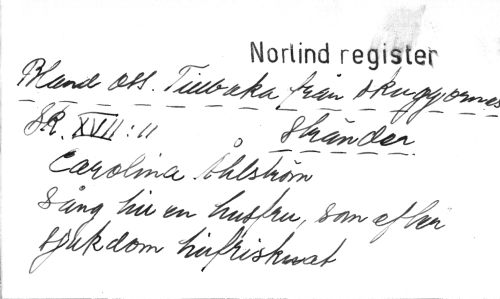 Norlind register
Bland oss. Tillbaka från skuggornas
SR. XVII:11 stränder
Carolina Åhlström
Sång hu en husfru, som efter
sjukdom tillfrisknat